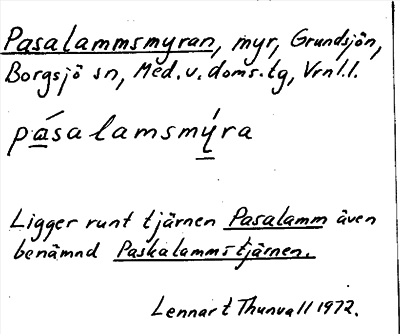 Pasalammsmyran, myr, Grundsjön,
Borgsjö sn, Med. v. doms. tg, Vrnl. l.
pásalamsmýra
Ligger runt tjärnen Pasalamm även
benämnd Paskalammstjärnen.
Lennart Thunvall 1972.